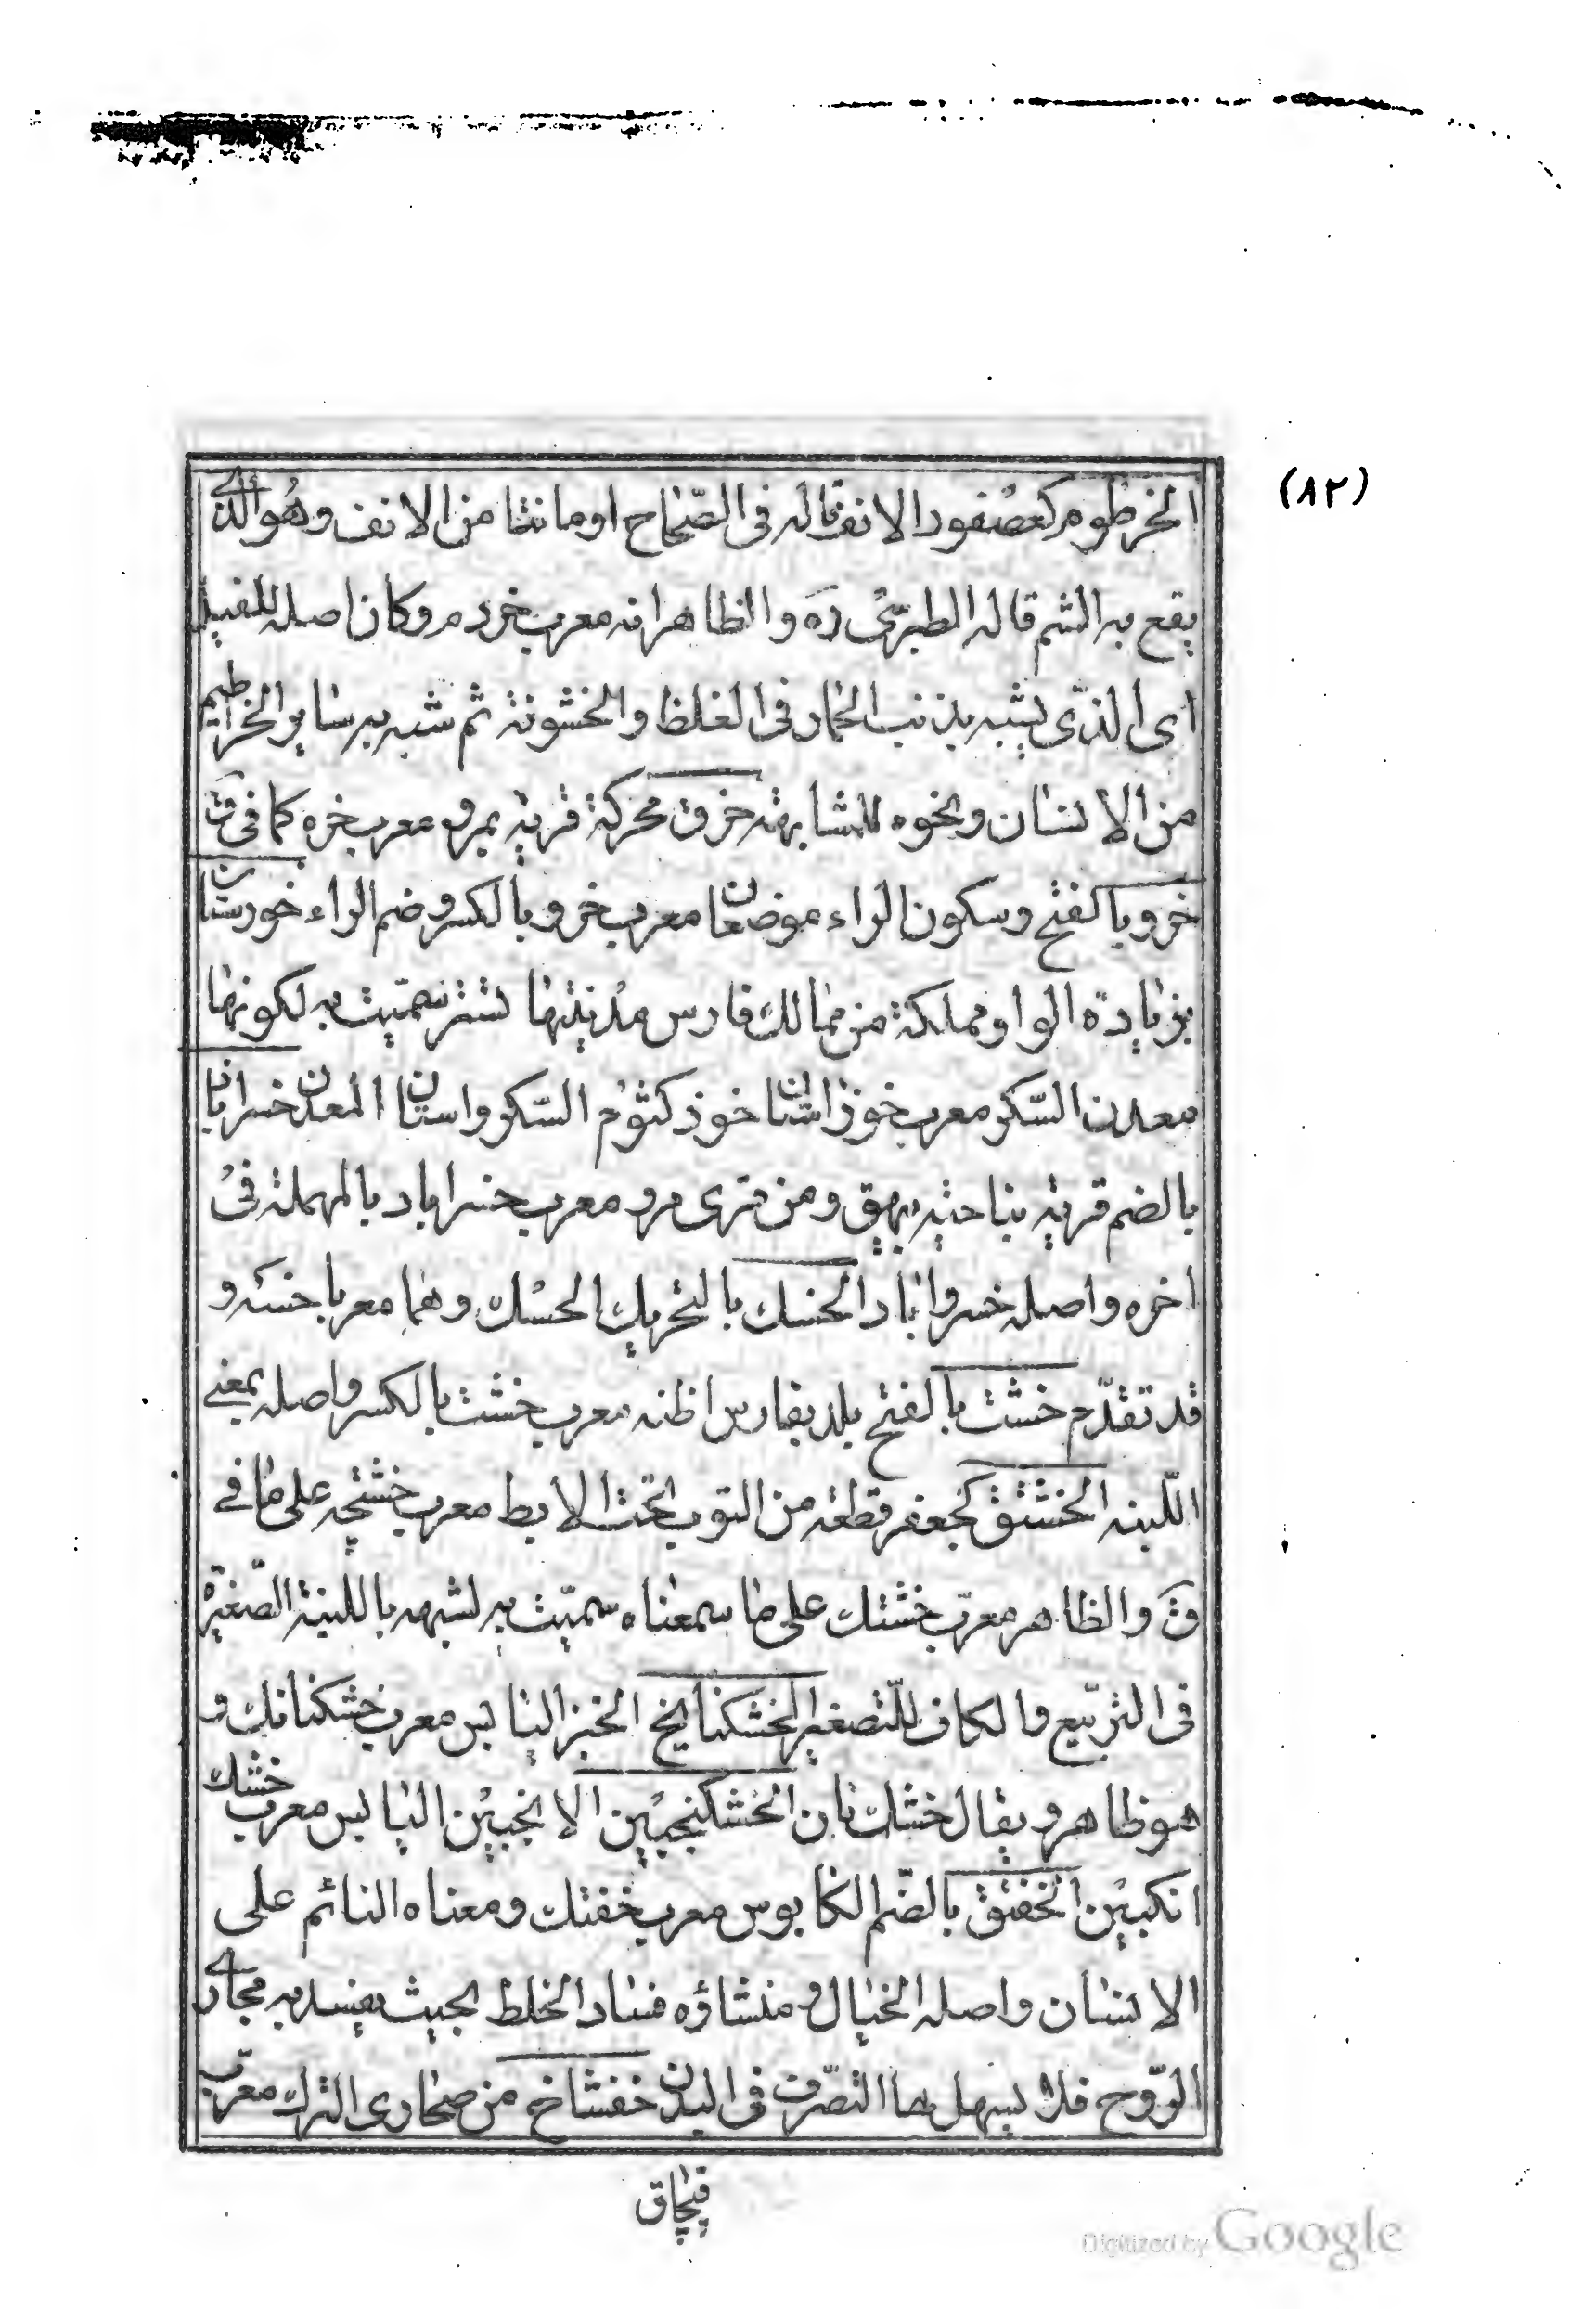 (٨٢)
الخرطوم كعصفور الانف قاله فى الصّحاح او ما نتفا من الانف وهُو الّذى
يقع به الشم قاله الطبرسى رَه والظاهر انه معرب خردم وكان اصله للفيل
اى الذّى يشبه بذنب الحمار فى الغلظ والخشونة ثم شبه به ساير الخراطيم
من الانسان ونحوه للمشابهة خرق محركة قرية بمرو معرب خره كما فى قَ
خرو بالفتح وسكون الراء موضعان معرب خرو بالكسر وضم الراء خورستان
بزيادة الواو مملكة من ممالك فارس مدينتها تستر سمّيت به لكونها
معدن السّكر معرب خوزاستان خوز كثوم السّكر واستان المعدن خسراباذ
بالضم قرية بناحيه بيهق ومن قرى مرو معرب خسراباد بالمهملة فى
اخره واصله خسرواباد الخسك بالتحريك الحسك وهما معربا خسه و
قد تقدّم خشت بالفتح بلد بفارس اظنه معرب خشت بالكسر واصله بمعنى
اللّبنه الخشتق كجعفر قطعة من الثوب تحت الابط معرب خشتچه على ما فى
قَ والظاهر معرّب خشتك على ما سمعناه سميّت به لشبهه باللبنة الصّغيرة
فى التربيع والكاف للتّصغير الخشكنانج الخبز اليابس معرب خشكنانك و
هو ظاهر ويقال خشك نان الخشكنجبين الانجبين اليابس معرب خشك
انكبين الخفتق بالضّم الكابوس معرب خفتك ومعناه النائم على
الانسان واصله الخيال ومنشاؤه فساد الخلط بحيث يفسد به مجارى
الرّوح فلا يسهل لها التصّرف فى البدن خفشاخ من صحارى الترك معرّب
قپچاق
Digitized by Google